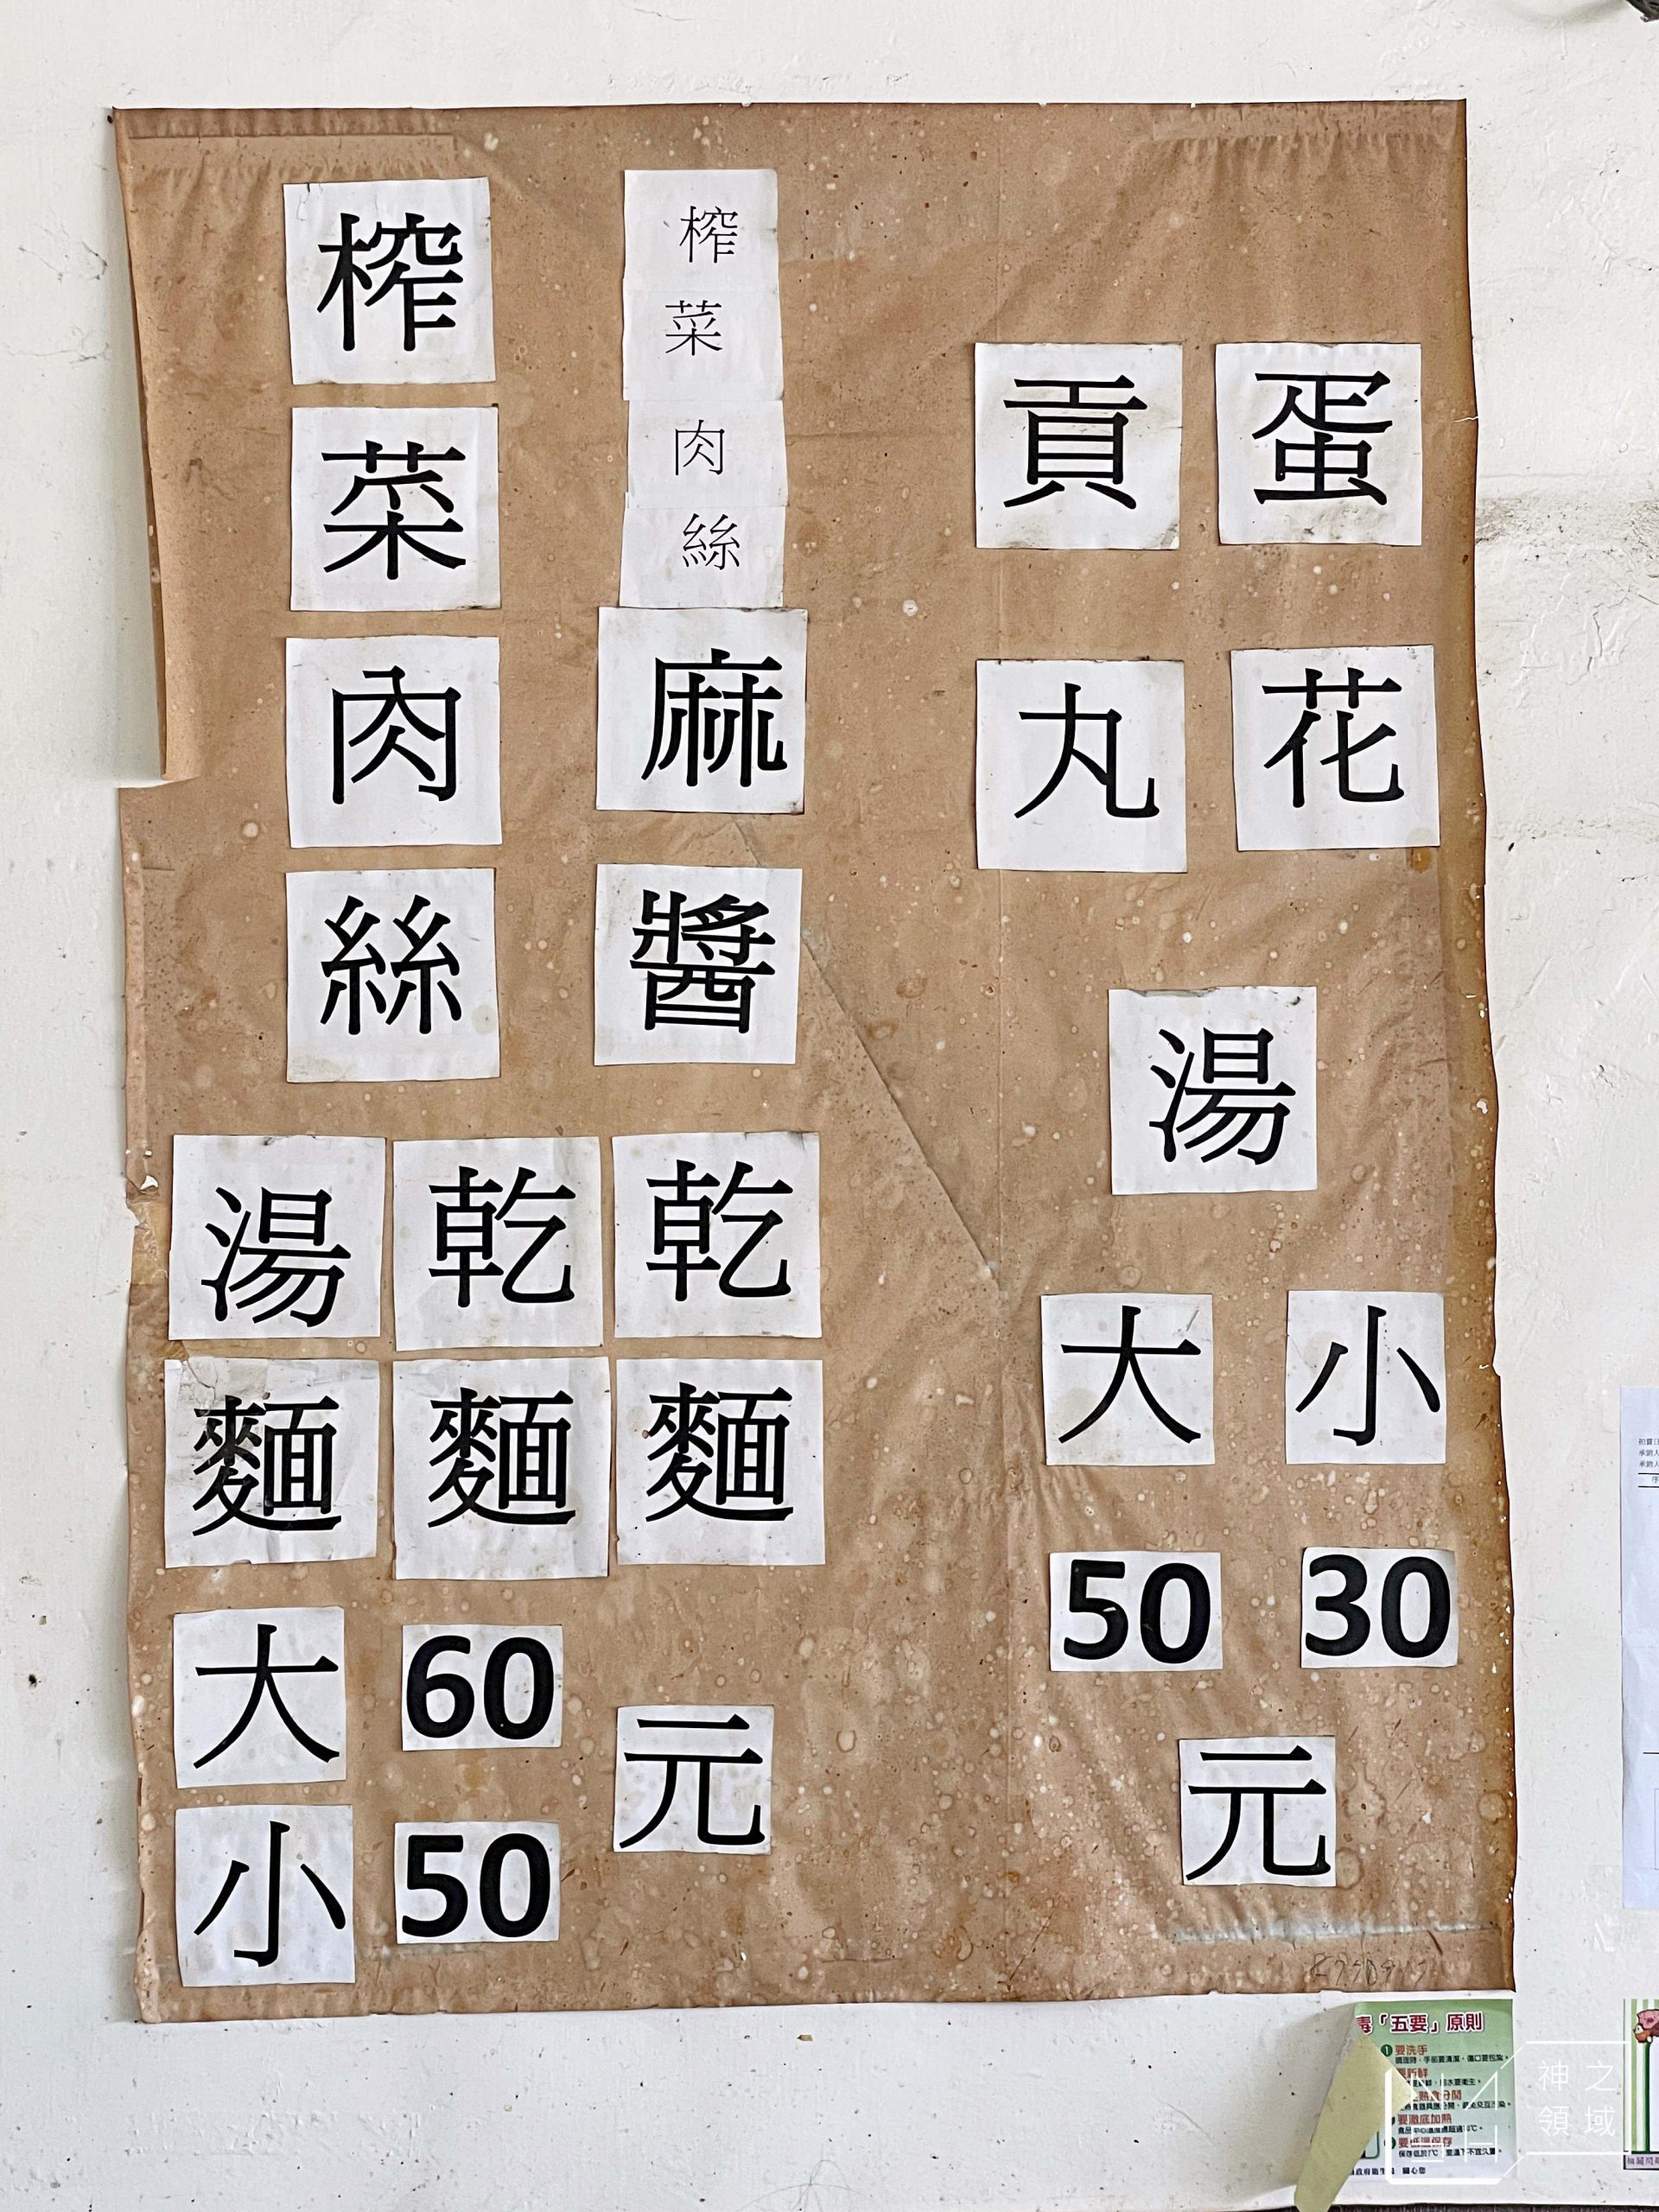 榨菜肉絲
湯麵
乾麵
榨菜肉絲
麻醬
乾麵
大 60
小 50
元
貢丸
蛋花
湯
大 小
50 30
元
「五要」原則
1 要洗手
要澈底加熱
神之
領域